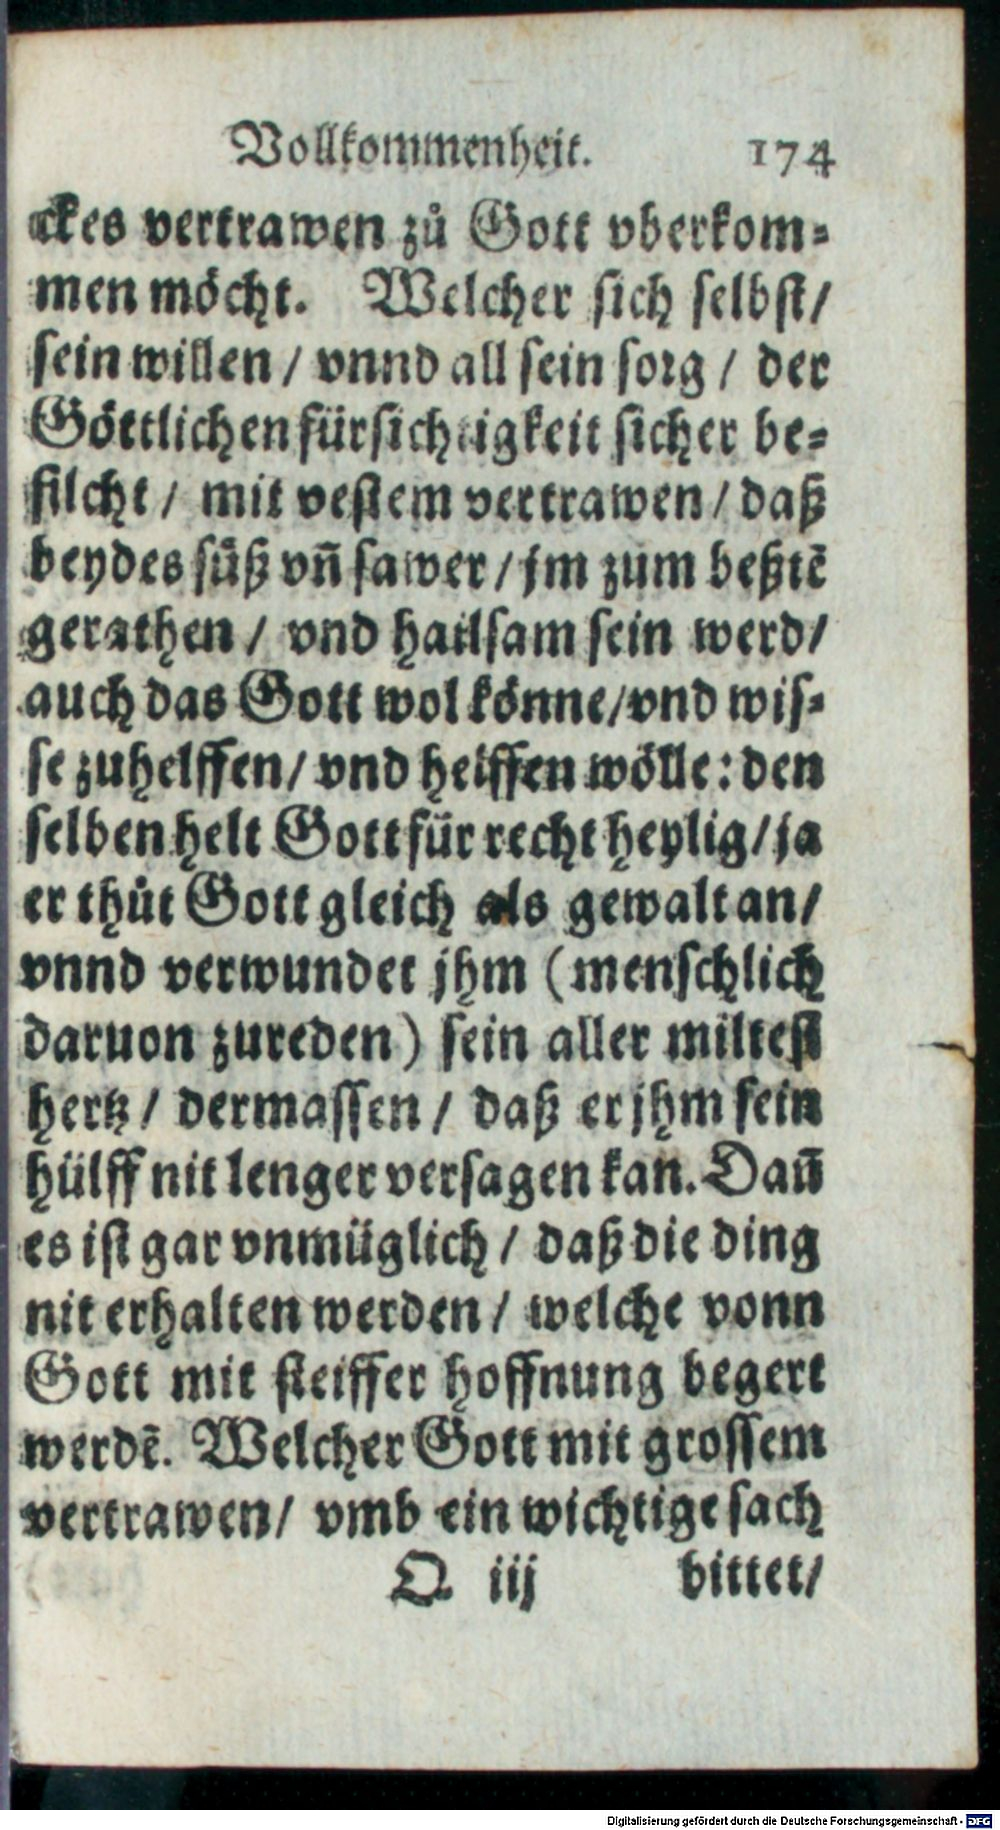 Vollkommenheit. 174
ckes vertrawen zů Gott vberkom-
men möcht. Welcher sich selbst/
sein willen / vnnd all sein sorg / der
Göttlichen fürsichtigkeit sicher be-
filcht / mit vestem vertrawen / daß
beydes süß vñ sawer / jm zum beßtē
gerathen / vnd hailsam sein werd/
auch das Gott wol könne/vnd wis-
se zuhelffen/ vnd helffen wölle: den
selben helt Gott für recht heylig/ ja
er thůt Gott gleich als gewalt an/
vnnd verwundet jhm (menschlich
daruon zureden) sein aller miltest
hertz / dermassen / daß er jhm sein
hülff nit lenger versagen kan. Dañ
es ist gar vnmüglich / daß die ding
nit erhalten werden / welche vonn
Gott mit steiffer hoffnung begert
werdē. Welcher Gott mit grossem
vertrawen/ vmb ein wichtige sach
Q iij bittet/
Digitalisierung gefördert durch die Deutsche Forschungsgemeinschaft - DFG